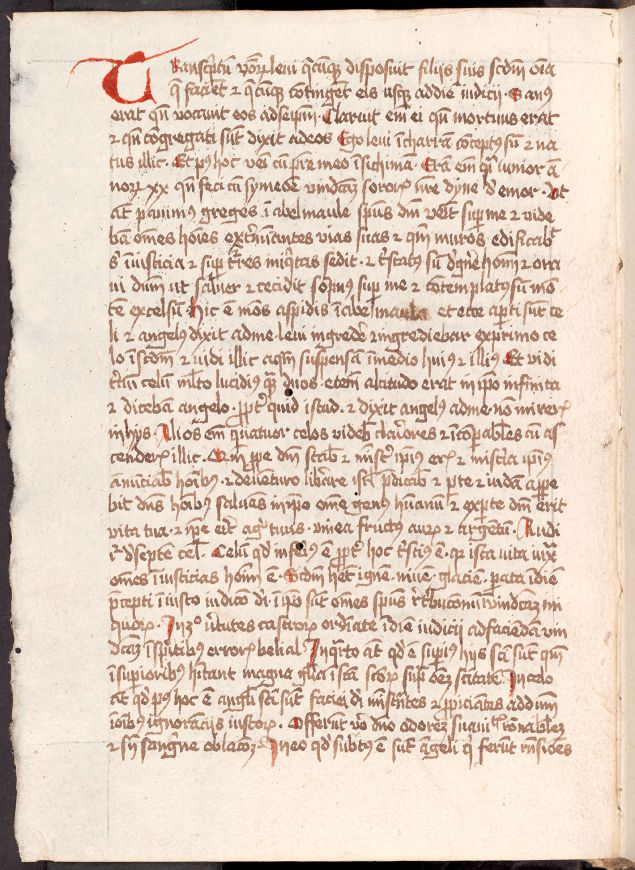 Transcriptum verborum leui quecumque disposuit filijs suis secundum omnia
que facient et quecumque contingent eis usque ad diem iudicii Sanus
erat quando vocauit eos ad seipsum Claruit enim ei quando mortuus erat
et quando congregati sunt dixit ad eos Ego leui in charram conceptus sum et na
tus illic Et post hoc veni cum patre meo in sichimam Eram enim quasi iunior an
norum xx quando feci cum symeone vindictam sororis nostre dyne de emor
autem pauimus greges in abelmaule spiritus domini venit super me et vide
bam omnes homines exterminantes vias suas et quoniam muros edificabat
iniusticia et super turres iniquitas sedit et tristatus sum de genere hominum et ora
ui dominum ut saluer et cecidit sopnus super me et contemplatus sum mon
tem excelsum hic est mons aspidis in abelmaula et ecce aperti sunt ce
li et angelus dixit ad me leui ingredere et ingrediebar ex primo ce
lo in secundum et uidi illic aquam suspensam in medio huius et illius Et vidi
tertium celum multo lucidius quam duos etenim altitudo erat in ipso infinita
et dicebam angelo propter quid istud et dixit angelus ad me non mireris
in hys Alios enim quatuor celos videbis clariores et incomparabiles cum as
cenderis illic Quoniam prope dominum stabis et minister ipsius eris et misteria ipsius
annunciabis hominibus et de venturo liberare israel predicabis et per te et iudam appare
bit dominus hominibus saluans in ipso omne genus humanum et ex parte domini erit
vita tua et ipse erit ager tuus vinea fructus aurum et argentum Audi
igitur de septem celis Celum quod inferius est propter hoc tristius est quia ista vita iuxta
omnes iniusticias hominum est Secundum habet ignem niuem glaciem parata in diem
precepti in iusto iudicio dei in ipso sunt omnes spiritus retributionum in vindictam ini
quorum In tertio virtutes castrorum ordinate in die iudicii ad faciendam vin
dictam in spiritibus erroris belial In quarto autem quod est superius hys sancti sunt quoniam
in superioribus habitant magna gloria in sancta sanctorum super omnem sanctitatem In celo
autem quod post hoc est angeli sunt faciei domini ministrantes et propiciantes ad dominum
in omnibus ignoranciis iustorum Offerunt vero domino odorem suauitatis rationabilem
et sine sanguine oblationem In eo quod subtus est sunt angeli qui ferunt responsiones